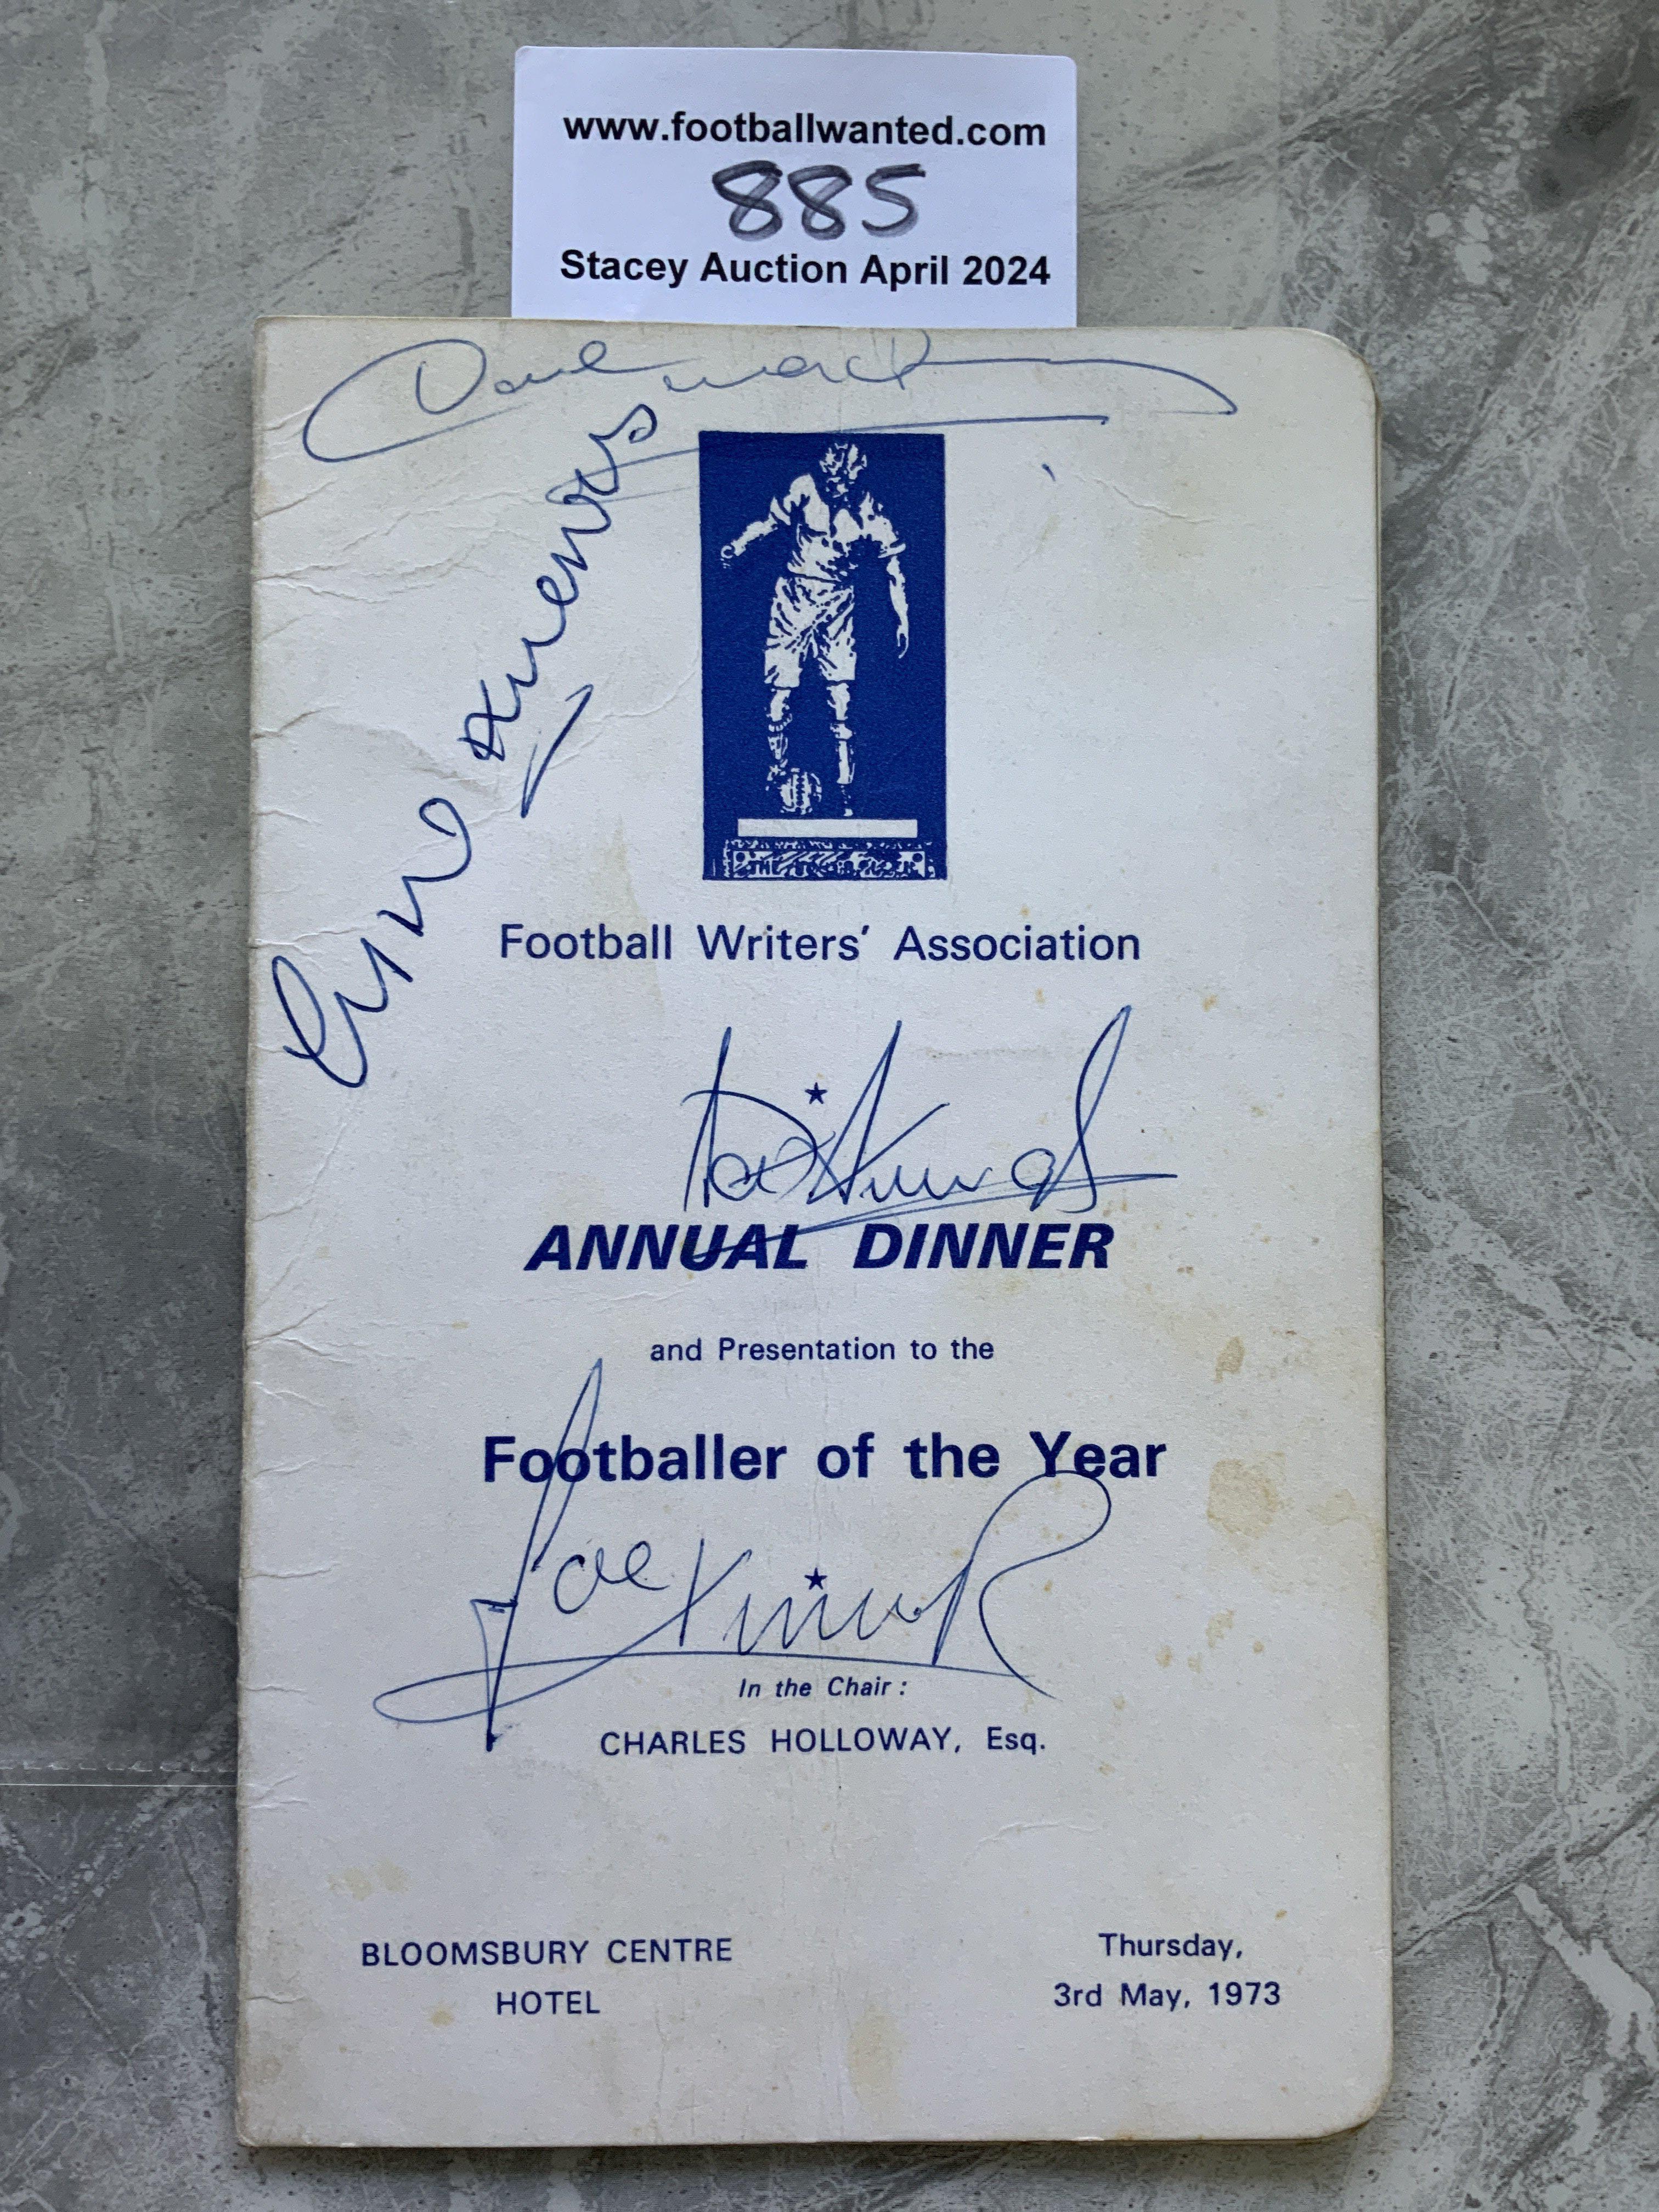 www.footballwanted.com
885
Stacey Auction April 2024
Dave Mackay
Football Writers' Association
★
ANNUAL DINNER
and Presentation to the
Footballer of the Year
Joe Kinnear
★
In the Chair :
CHARLES HOLLOWAY, Esq.
BLOOMSBURY CENTRE
HOTEL
Thursday,
3rd May, 1973